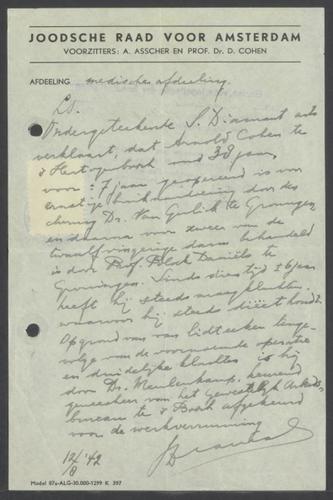 JOODSCHE RAAD VOOR AMSTERDAM
VOORZITTERS: A. ASSCHER EN PROF. Dr. D. COHEN
AFDEELING medische afdeeling.
L.s.
Ondergeteekende S. Diamant arts
verklaart, dat Arnold Cohen te
's Hertogenbosch oud 38 jaar
voor ± 7 jaar geopereerd is voor
ernstige buikaandoening door des
chirurg Dr. Van Gulik te Groningen
en daarna voor zweer van de
twaalfvingerige darm behandeld
is door Prof. Polak Daniëls te
Groningen. Sinds dien tijd ± 6 jaar
heeft hij steeds maagklachten.
waarvoor hij steeds diëet houdt.
Op grond van van lidteeken tenge-
volge van de voornoemde operatie
en duidelijke klachten is hij
door Dr. Meulenkamp, keurend
geneesheer van het Gewestelijk Arbeids
bureau te 's Bosch afgekeurd
voor de werkverruiming
12/8 '42
S Diamant
Model 87a-ALG-30.000-1299 K 397